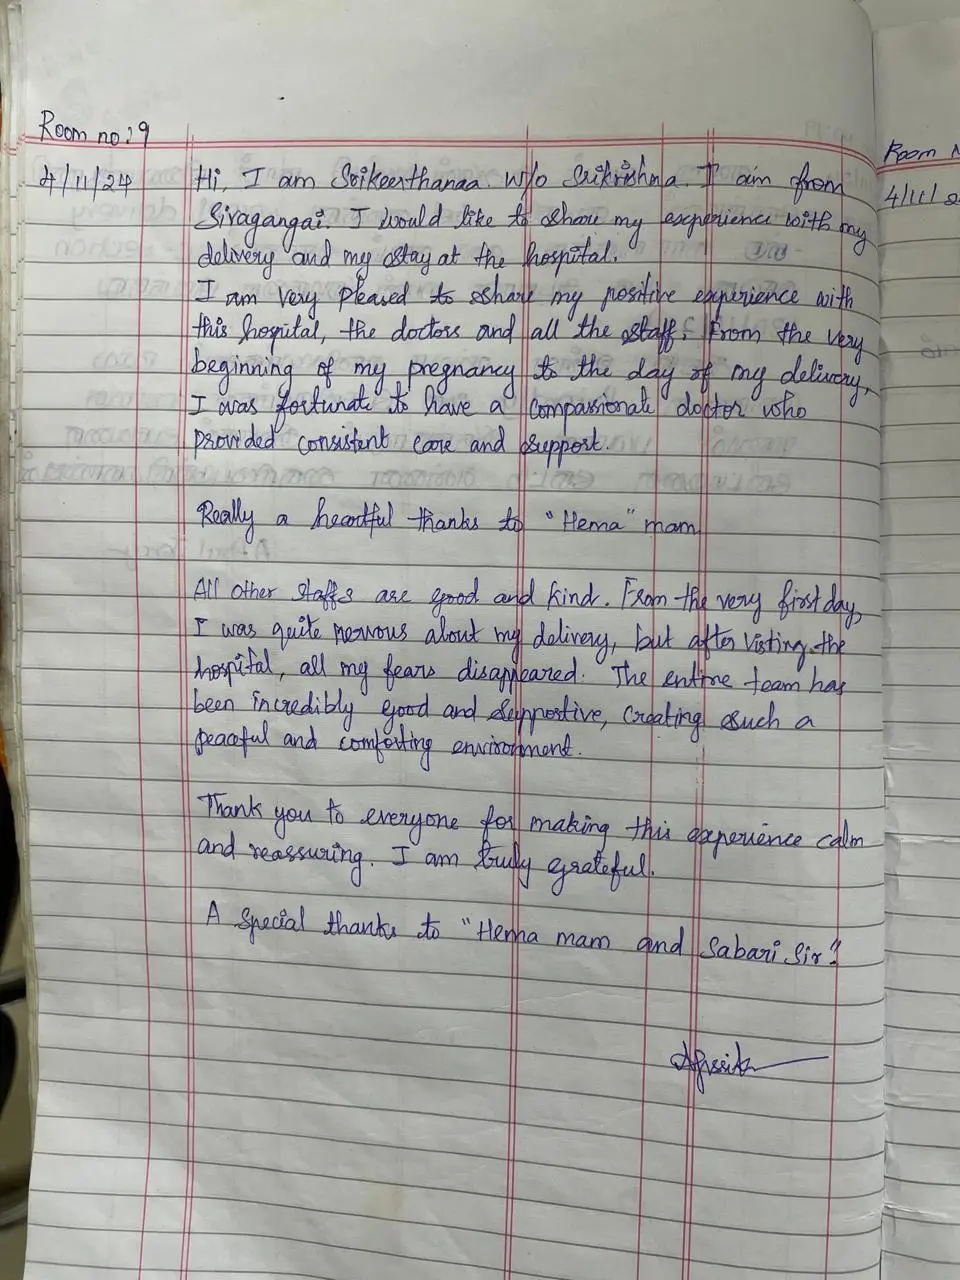 Room no: 9
4/11/24
Hi, I am Srikeerthanaa. W/o Srikrishna. I am from
Sivagangai. I would like to share my experience with my
delivery and my stay at the hospital.
I am very pleased to share my positive experience with
this hospital, the doctors and all the staff. From the very
beginning of my pregnancy to the day of my delivery,
I was fortunate to have a compassionate doctor who
provided consistent care and support.
Really a heartful thanks to "Hema" mam
All other staffs are good and kind. From the very first day,
I was quite nervous about my delivery, but after visting the
hospital, all my fears disappeared. The entire team has
been incredibly good and supportive, creating such a
peaceful and comforting environment.
Thank you to everyone for making this experience calm
and reassuring. I am truly grateful.
A special thanks to "Hema mam and Sabari Sir"
Room
4/11/2